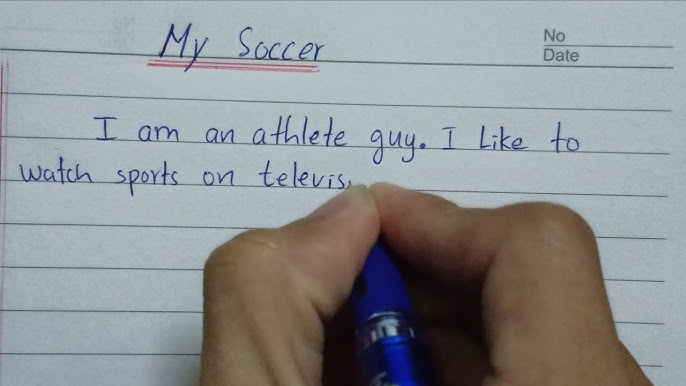 My Soccer
No
Date
I am an athlete guy. I like to
watch sports on televis